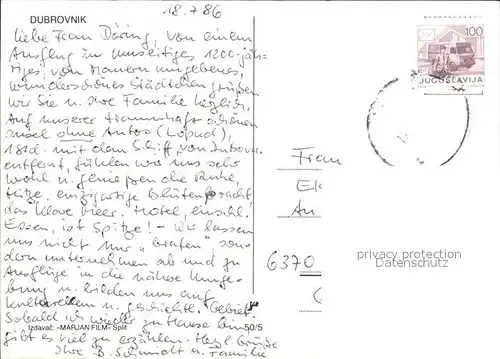 18.7.86
DUBROVNIK
Liebe Frau Döring, von einem
Ausflug in
1200-jäh-
riges, von Mauern umgebenes,
wunderschönes Städtchen, grüßen
wir Sie u. Ihre Familie herzlich.
Auf unserer traumhaft schönen
Insel ohne Autos (Lopud),
1 Std. mit dem Schiff von Dubrovn.
entfernt, fühlen wir uns sehr
wohl u. genießen die Ruhe,
Hitze, einzigartige Blütenpracht,
das klare Meer. Hotel, einschl.
Essen, ist Spitze! - Wir lassen
uns nicht nur "braten" son-
dern unternehmen ab und zu
Ausflüge in die nähere Umge-
bung u. bilden uns auf
kulturellem u. geschichtl. Gebiet.
Sobald ich wieder zu Hause bin
gibt es viel zu erzählen. Herzl. Grüße
Ihre B. Schmidt u. Familie
Izdavač: -MARJAN FILM- Split
50/5
100
JUGOSLAVIJA
Frau
An
6370
privacy protection
Datenschutz